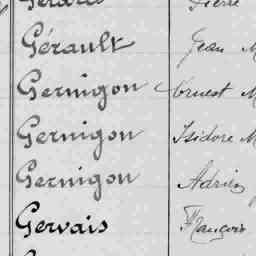 Gérault Jean
Gernigon Ernest
Gernigon Isidore
Gernigon Adrien
Gervais François